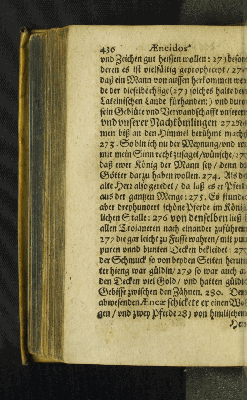 436 Æneidos
vnd Zeichen gut heissen wollen: 273 beson
deren es ist vielfältig gepropheceyt/ 27
daß ein Mann von aussen herkommen we
de der diesel 27 solches halte de
Lateinischen Lande fürhanden:) vnd dur
sein Geblüte vnd Verwandschafft vnseren
vnd vnserer Nachkömlingen 272 N
men biß an den Himmel berühmt mach
273. So bin ich nu der Meynung/ vnd w
mit mein Sinn recht zusaget/ wünsche/ 27
daß ewer König der Mann sey/ denn d
Götter darzu haben wollen. 274. Als d
alte Herr also geredet/ da laß es er Pferd
aus der gantzen Menge: 275. Es stunde
aber dreyhundert schöne Pferde im König
lichen Stalle: 276 von denselben ließ
allen Trojanern nach einander zuführen
277 die gar leicht zu Fusse wahren/ mit pur
puren vnnd bunten Decken bekleidet: 27
der Schmuck so von beyden Seiten herun
ter hieng war güldin/ 279 so war auch a
den Decken viel Gold/ vnd hatten güldi
Gebisse zwischen den Zähnen. 280. Dem
abwesenden Æneæ schickete er einen Wa
gen/ vnd zwey Pferde 281 von himlischem